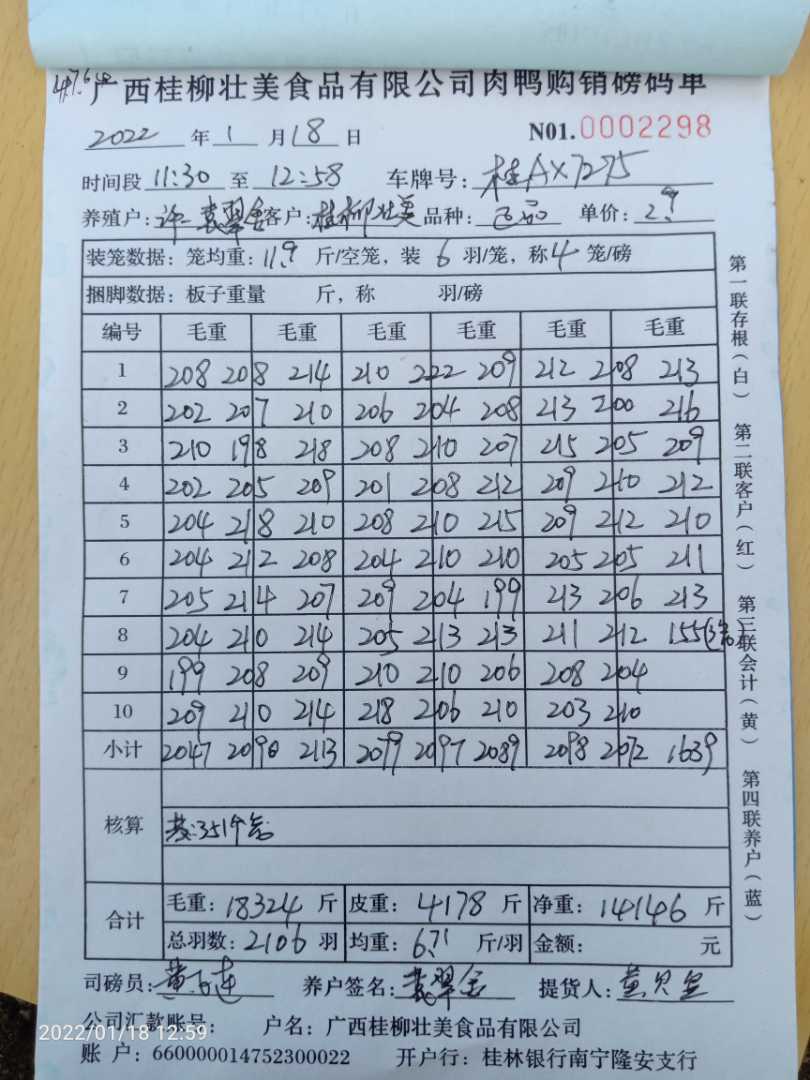 广西桂柳壮美食品有限公司肉鸭购销磅码单
2022 年 1 月 18 日 N01.0002298
时间段 11:30 至 12:58 车牌号: 桂AX7275
养殖户: 许 袁翠金 客户: 桂柳壮美 品种: 单价: 2.9
装笼数据: 笼均重: 11.9 斤/空笼, 装 6 羽/笼, 称 4 笼/磅
捆脚数据: 板子重量 斤, 称 羽/磅
编号 毛重 毛重 毛重 毛重 毛重 毛重
1 208 208 214 210 222 209 212 208 213
2 202 207 210 206 204 208 213 200 216
3 210 198 218 208 210 207 215 205 209
4 202 205 209 201 208 212 209 210 212
5 204 218 210 208 210 215 209 212 210
6 204 212 208 204 210 210 205 205 211
7 205 214 207 209 204 199 213 206 213
8 204 210 214 205 213 213 211 212 155(3笼)
9 199 208 209 210 210 206 208 204
10 209 210 214 218 206 210 203 210
小计 2047 2090 2113 2079 2097 2089 2098 2072 1639
核算 共:351个笼
合计 毛重: 18324 斤 皮重: 4178 斤 净重: 14146 斤
总羽数: 2106 羽 均重: 6.71 斤/羽 金额: 元
司磅员: 养户签名: 袁翠金 提货人:
公司汇款账号: 户名: 广西桂柳壮美食品有限公司
账 户: 660000014752300022 开户行: 桂林银行南宁隆安支行
第一联存根(白) 第二联客户(红) 第三联会计(黄) 第四联养户(蓝)
2022/01/18 12:59